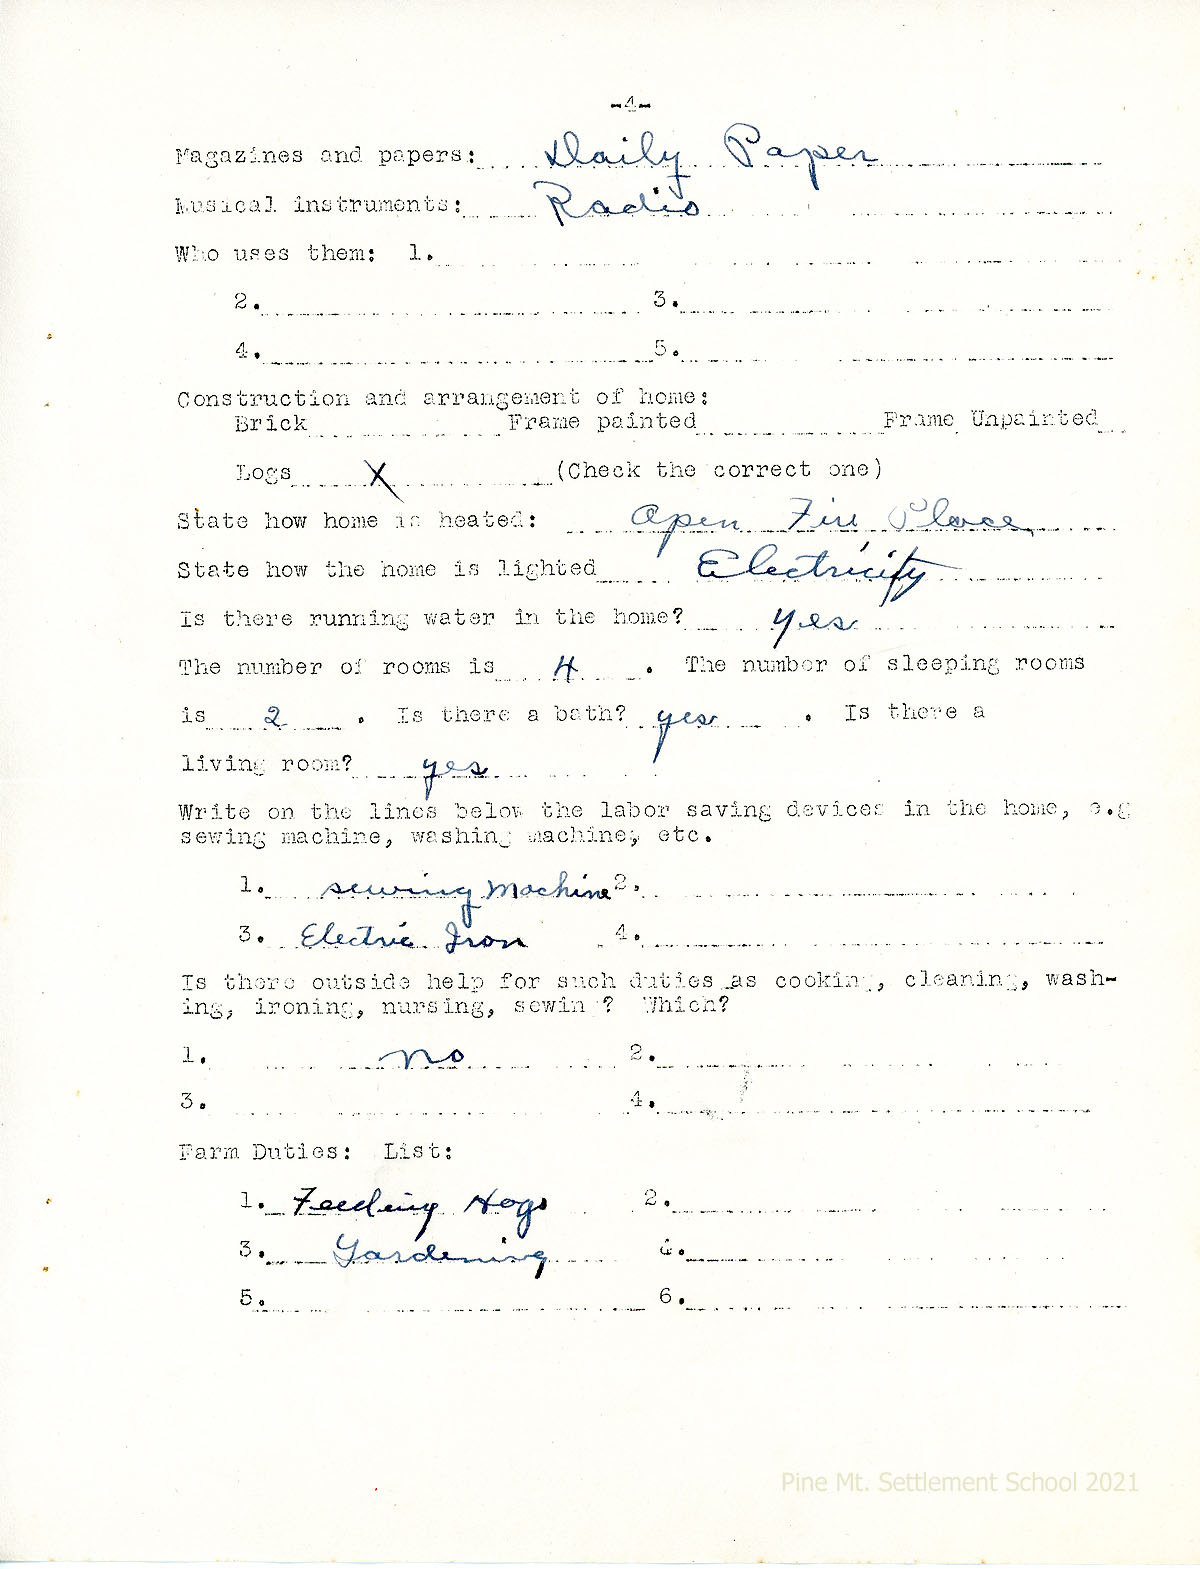 -4-
Magazines and papers: Daily Paper
Musical instruments: Radio
Who uses them: 1.
2. 3.
4. 5.
Construction and arrangement of home:
Brick Frame painted Frame Unpainted
Logs X (Check the correct one)
State how home is heated: Open Fire Place
State how the home is lighted Electricity
Is there running water in the home? yes
The number of rooms is 4 . The number of sleeping rooms
is 2 . Is there a bath? yes . Is there a
living room? yes
Write on the lines below the labor saving devices in the home, e.g
sewing machine, washing machine, etc.
1. sewing Machine 2.
3. Electric Iron 4.
Is there outside help for such duties as cooking, cleaning, wash-
ing, ironing, nursing, sewing? Which?
1. no 2.
3. 4.
Farm Duties: List:
1. Feeding Hogs 2.
3. Gardening 4.
5. 6.
Pine Mt. Settlement School 2021